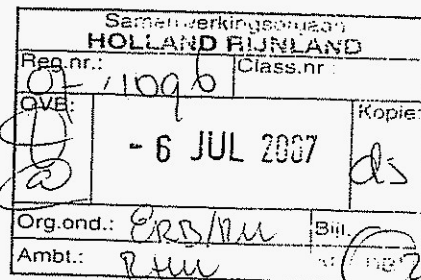 Samenwerkingsorgaan
HOLLAND RIJNLAND
Reg.nr.: 07-1096 Class.nr.:
OVB: Kopie:
- 6 JUL 2007 ds
Org.ond.: ERB/RU Bijl.
Ambt.: